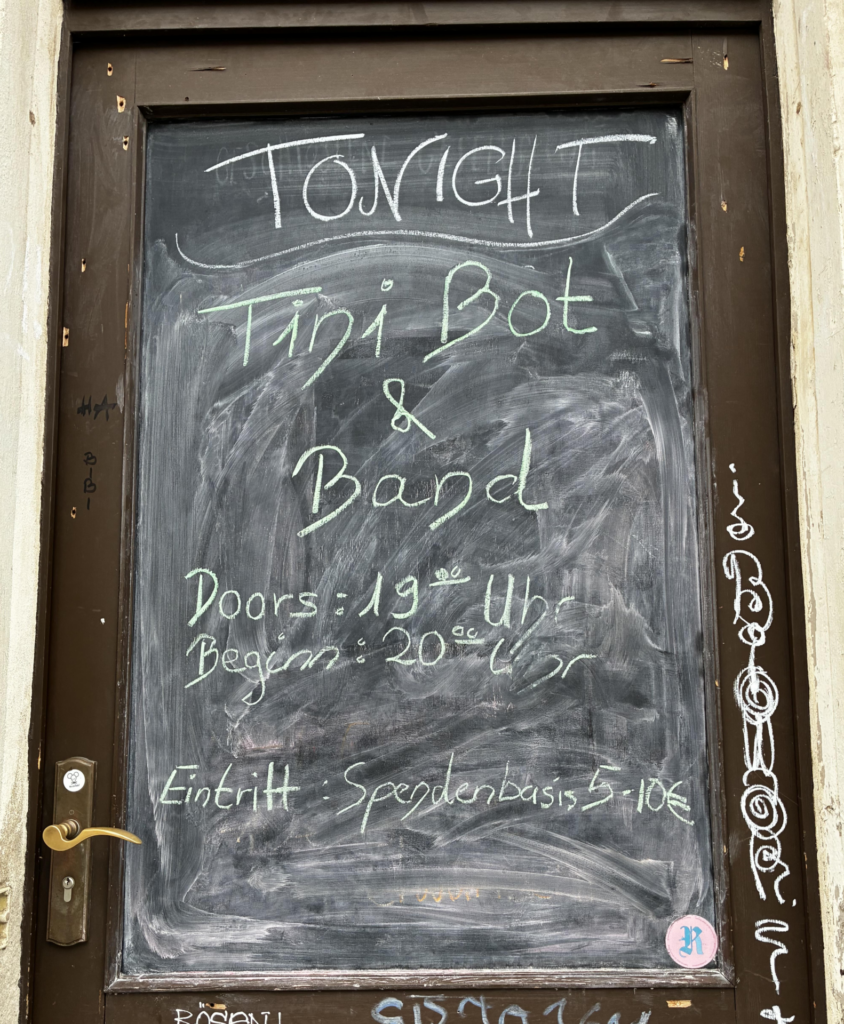 TONIGHT
Tini Bot
&
Band
Doors : 19 00 Uhr
Beginn : 20 00 Uhr
Eintritt : Spendenbasis 5-10€
R